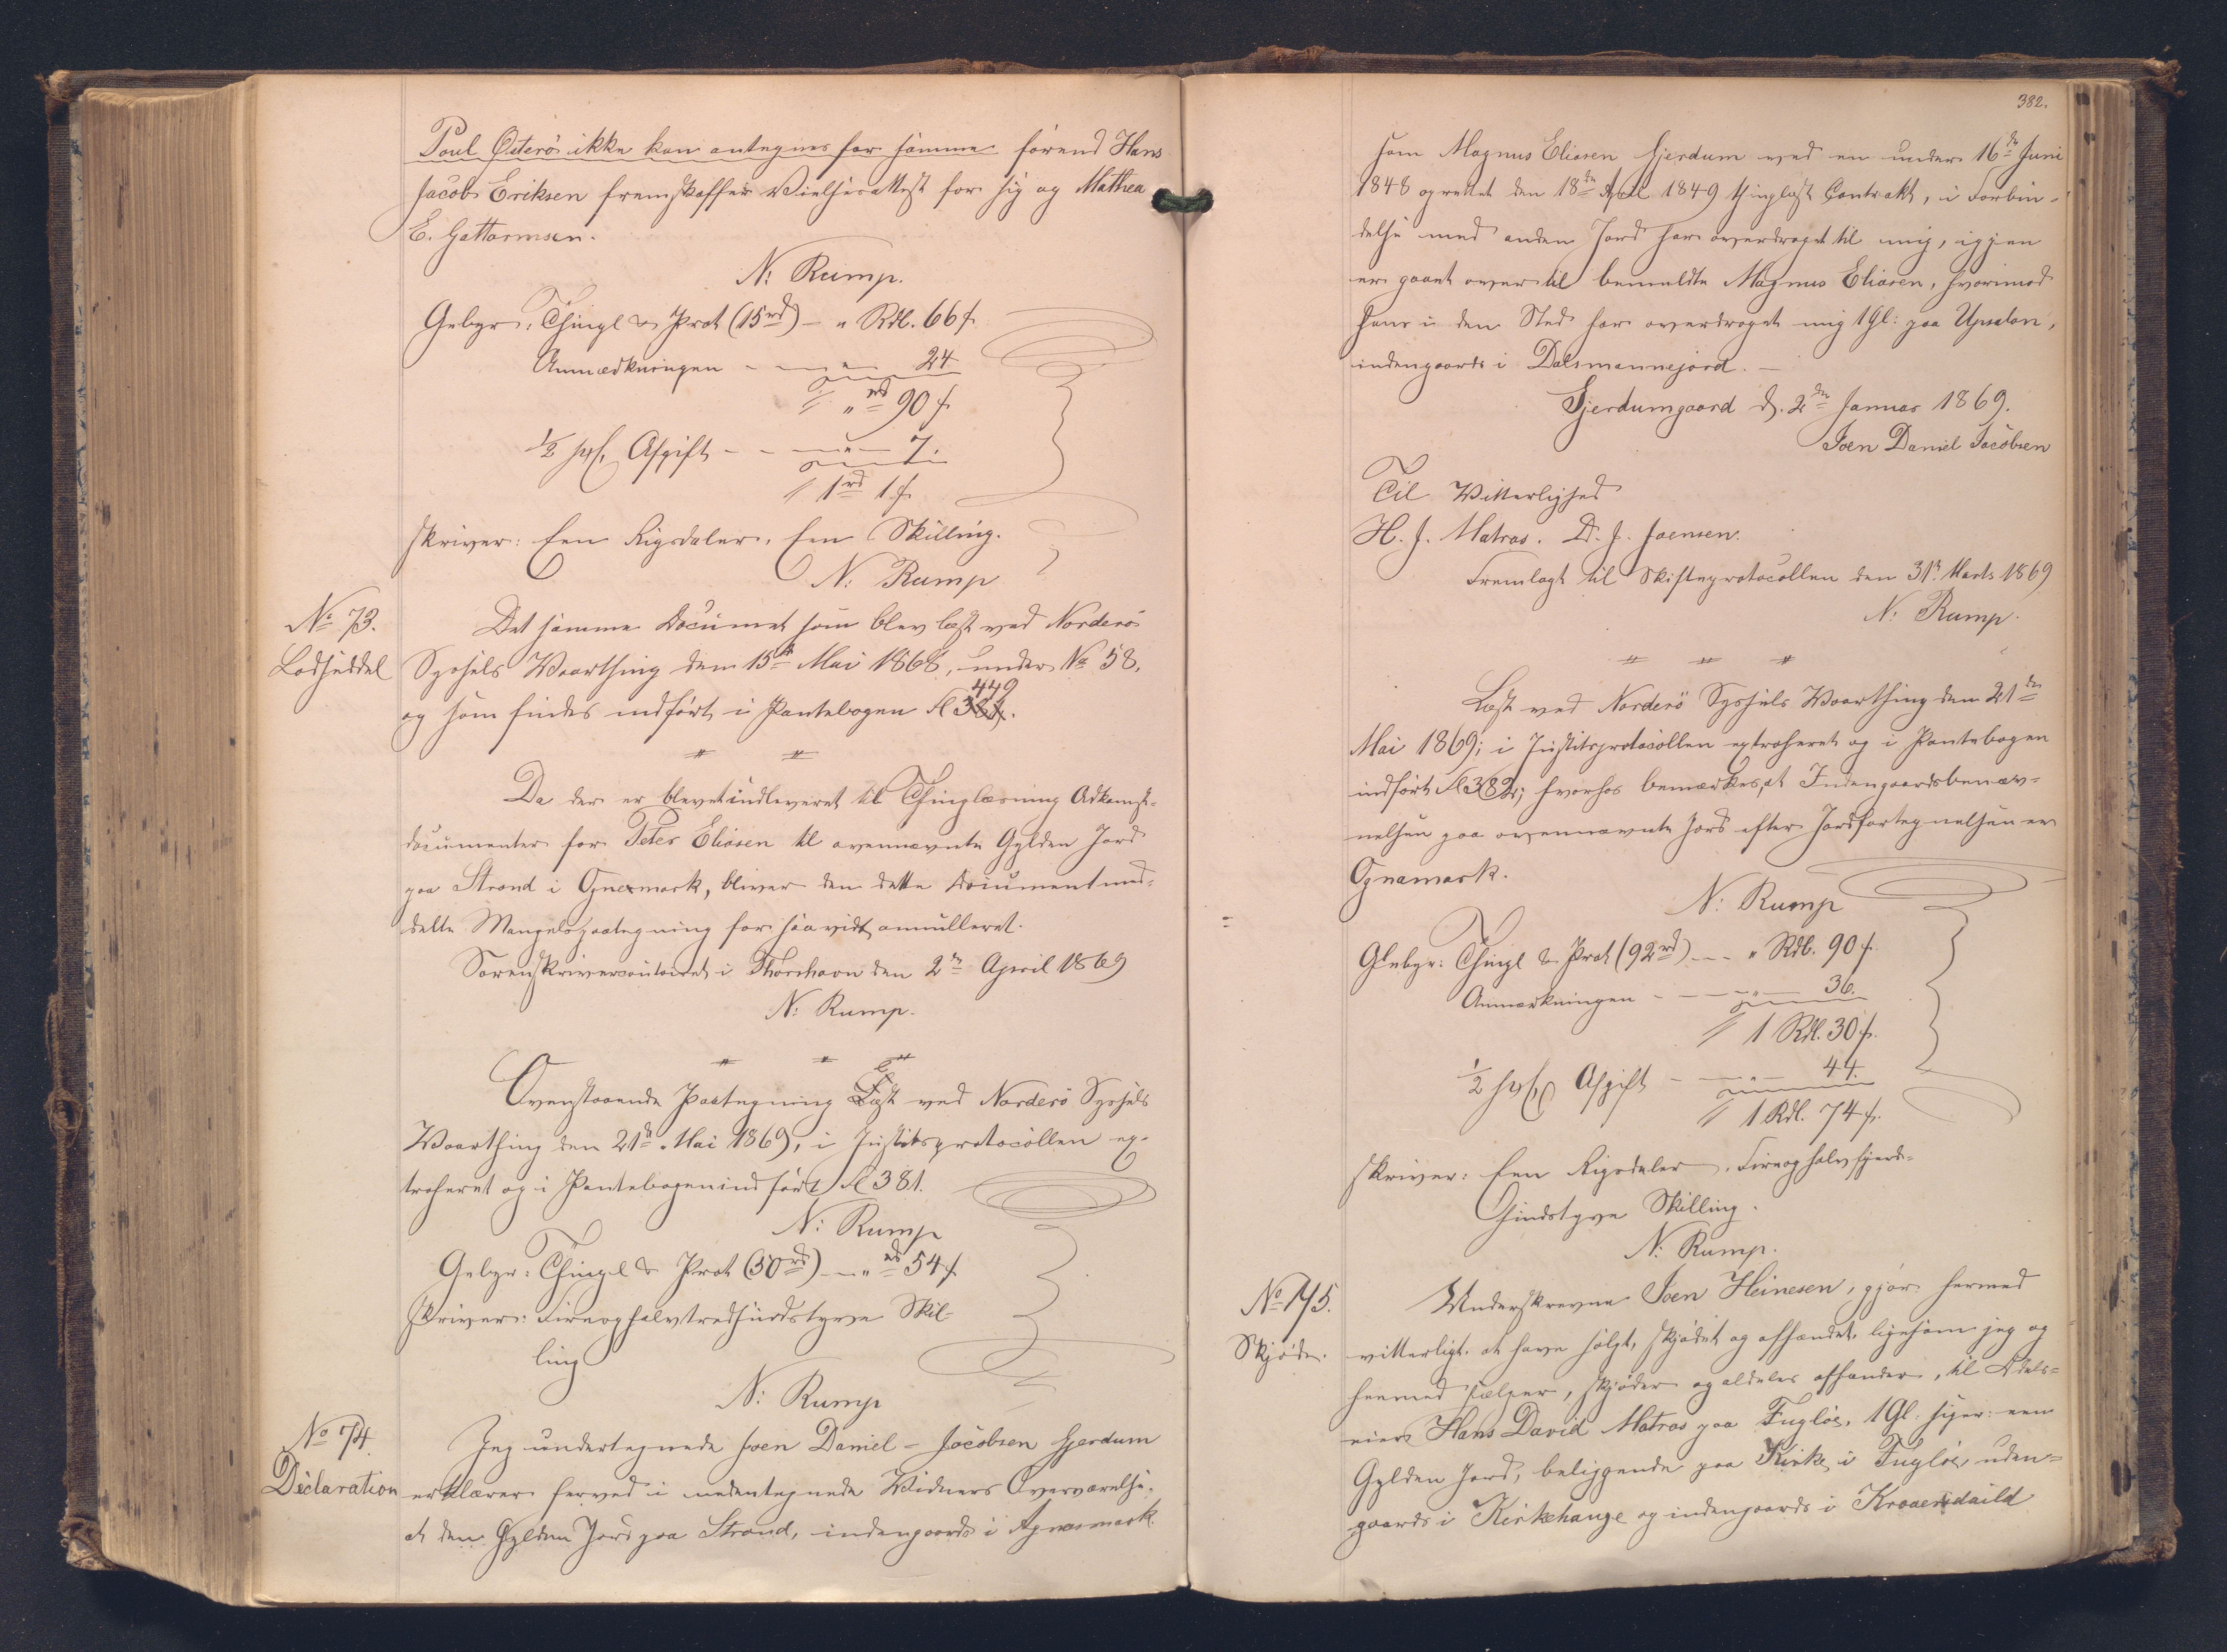 Poul Österö ikke kan antegnes for samme förend Hans
Jacob Eriksen fremskaffer Vielsesattest for sig og Mathea
E. Gattormsen.
N: Rump.
Gebyr: Thingl & Prot (15rd) – " Rdl. 66 f
Anmærkningen - - " - 24
" rd 90 f
½ pCt. Afgift - - - " - 7.
1 rd 1 f.
skriver: Een Rigsdaler, Een Skilling.
N: Rump
No 73.
Lodseddel
Det samme Document som blev læst ved Norderö
Syssels Vaarthing den 15de Mai 1868, under No 58,
og som findes indfört i Pantebogen Fl 449 381.
Da der er blevet indleveret til Thinglæsning Adkomst-
documenter for Peter Eliasen til ovennævnte Gylden Jord
paa Strand i Ognemark, bliver den dette Document med-
delte Mangelspaategning for saavidt annulleret.
Sorenskrivercontoiret i Thorshavn den 2de April 1869
N: Rump.
Ovenstaaende Paategning Læst ved Norderö Syssels
Vaarthing den 21de Mai 1869, i Justitsprotocollen ex-
traheret og i Pantebogen indfört Fl 381.
N: Rump
Gebyr: Thingl & Prot (50rd) - - " rd 54 f
skriver: Fireoghalvtredsindstyve Skil-
ling
N: Rump
No 74.
Declaration
Jeg undertegnede Joen Daniel - Jacobsen Gjerdum
erklærer herved i nedentegnede Vidners Overværelse,
at den Gylden Jord paa Strand, indengaards i Agnasmark
382.
som Magnus Eliasen Gjerdum ved en under 16de Juni
1848 oprettet den 18de April 1849 thinglæst Contrakt, i Forbin-
delse med anden Jord har overdraget til mig, igjen
er gaaet over til bemeldte Magnus Eliasen, hvorimod
han i den Sted har overdraget mig 1 Gl: paa Upsalon,
indengaards i Dalsmannejord.
Gjerdumgaard d. 2den Januar 1869.
Joen Daniel Jacobsen
Til Vitterlighed
H. J. Matras. D. J. Joensen.
Fremlagt til Skifteprotocollen den 31te Marts 1869
N: Rump.
Læst ved Norderö Syssels Vaarthing den 21de
Mai 1869; i Justitsprotocollen extraheret og i Pantebogen
indfört Fl 382; hvorhos bemærkes, at Indengaardsbenæv-
nelsen paa ovennævnte Jord efter Jordfortegnelsen er
Ognamark.
N: Rump
Gebyr: Thingl & Prot (92rd) - - " Rdl. 90 f.
Anmærkningen - - - " - 36.
1 Rdl. 30 f.
½ pCt. Afgift - - " - 44.
1 Rdl. 74 f.
skriver: Een Rigsdaler, Fireoghalvfjerd-
sindstyve Skilling.
N: Rump.
No 75.
Skjöde.
Underskrevne Joen Heinesen, gjör hermed
vitterligt at have solgt, skjödet og afhændet, ligesom jeg og
hermed sælger, skjöder og aldeles afhænder, til Odels-
eier Hans David Matras paa Fuglöe, 1 Gl. siger: een
Gylden Jord, beliggende paa Kirke i Fuglöe, uden-
gaards i Kirkehauge og indengaards i Kroaersdaild